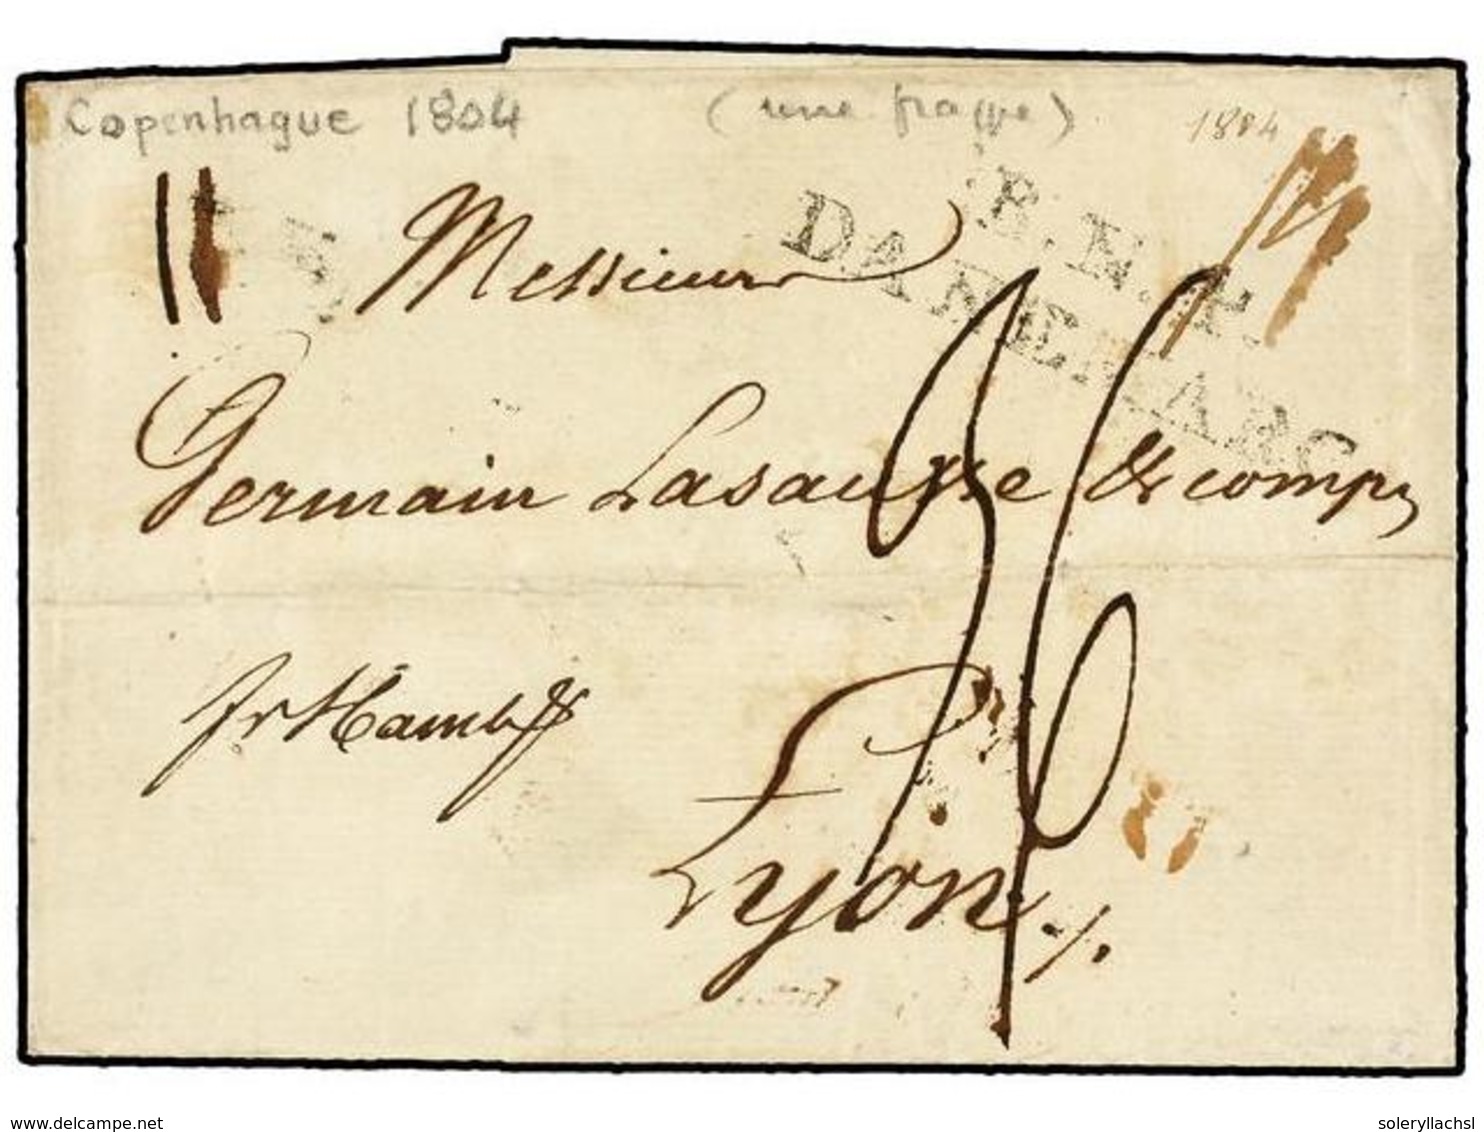 Copenhague 1804 (une frappe) 1804
R.N.P.
DANEMARC
Messieurs
Germain Lasausse & comp
fr Hambg
36
Lyon
delcampe.net
soleryllachsl